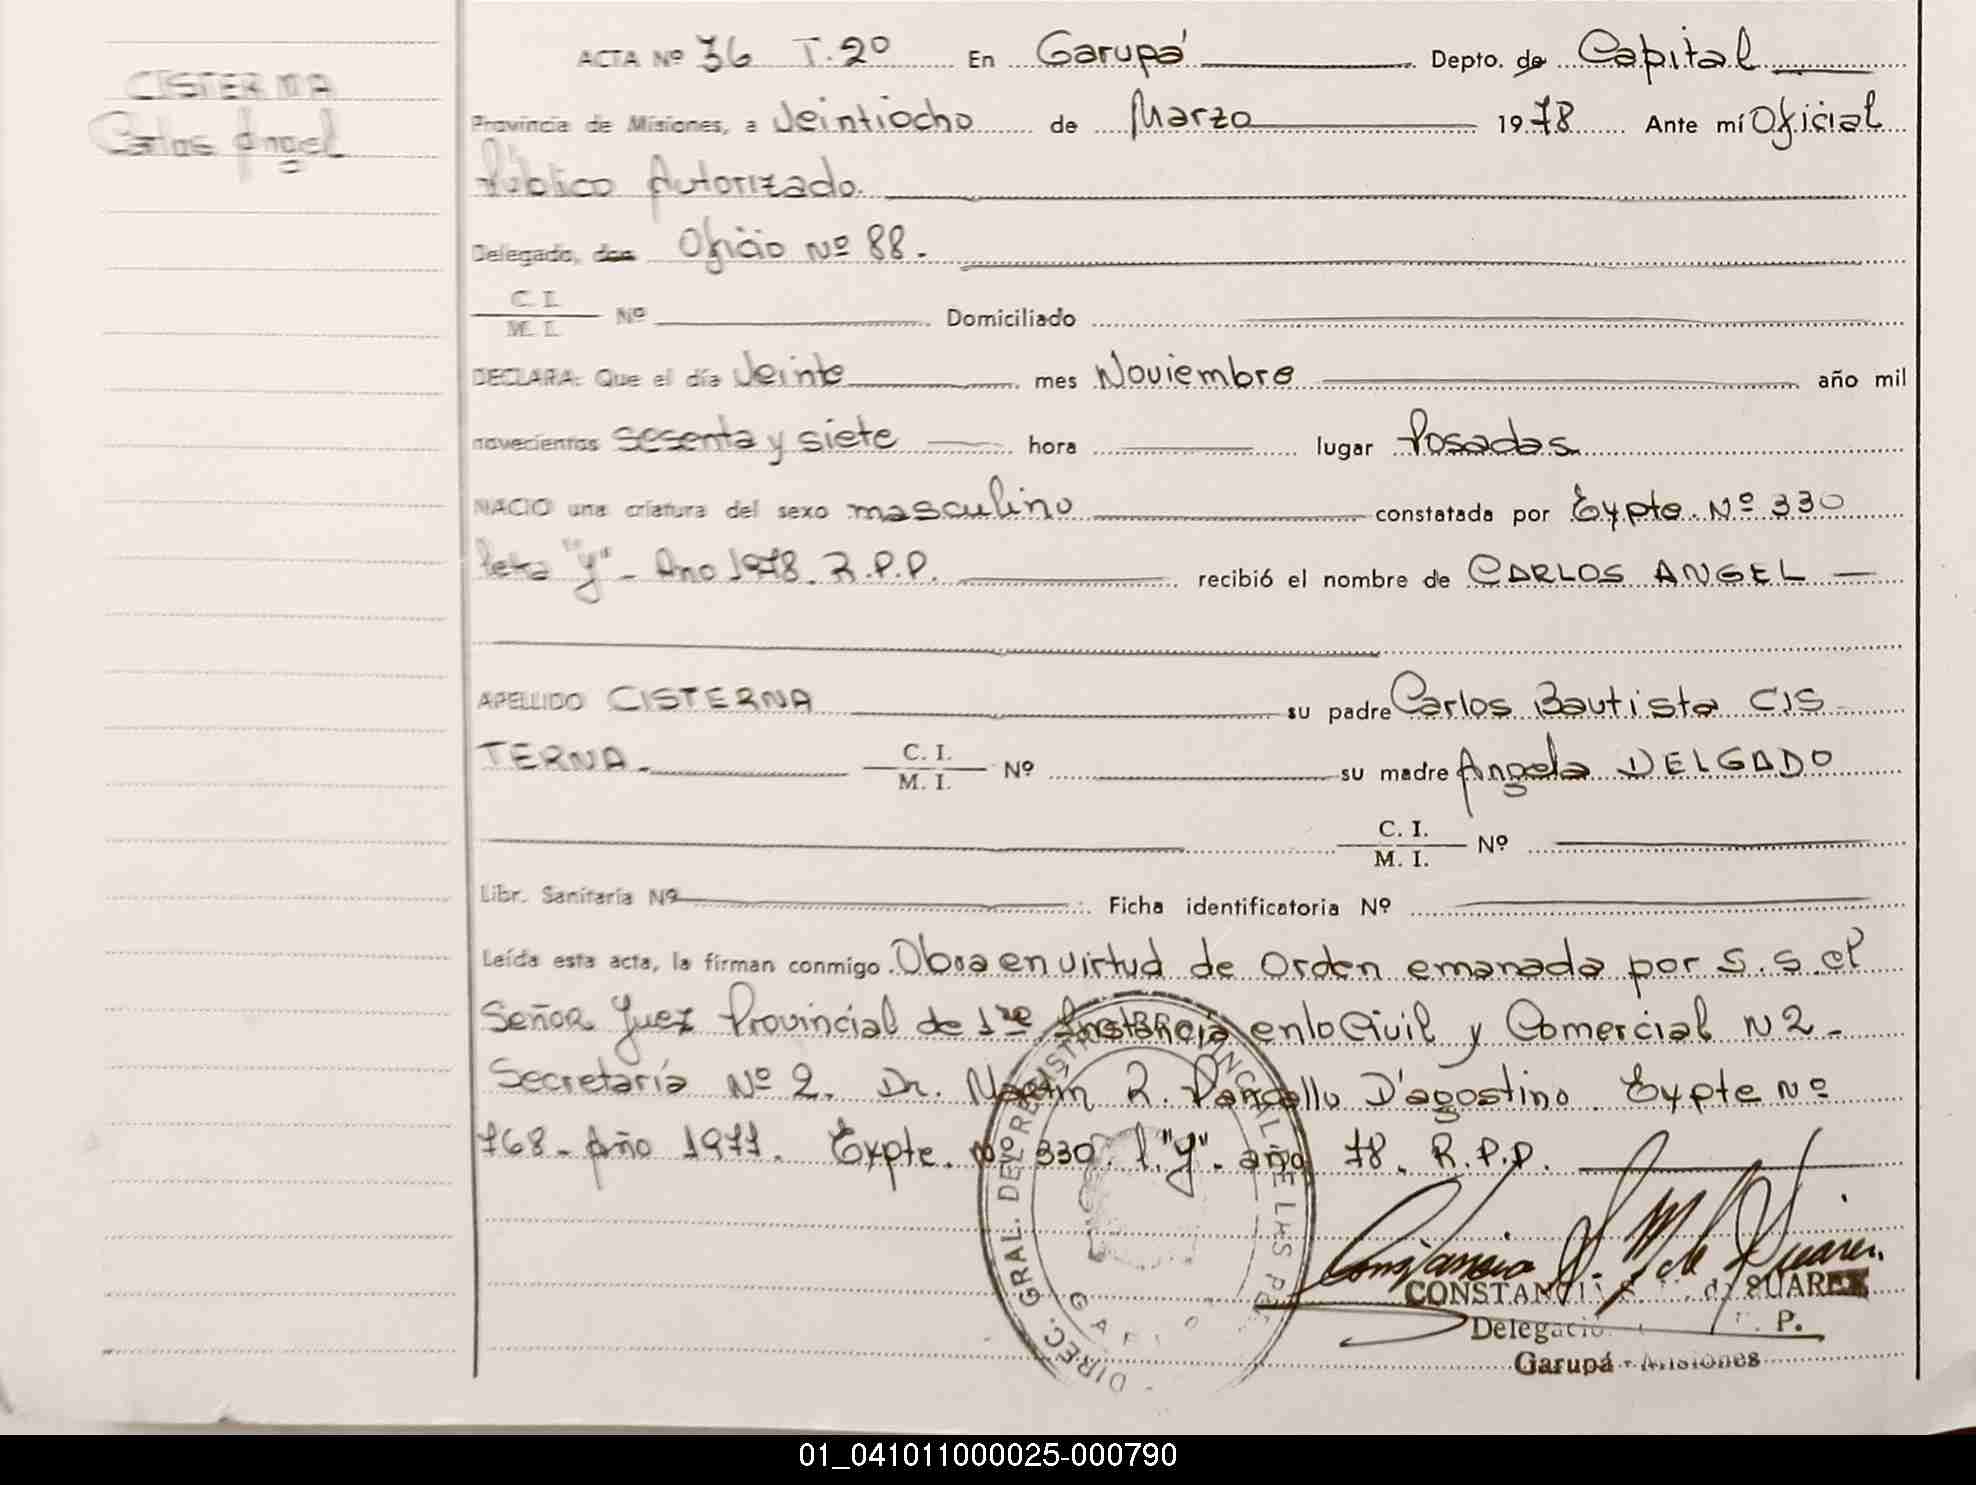 CISTERNA
Carlos Angel
ACTA Nº 36 T. 2º En Garupá Depto. de Capital
Provincia de Misiones, a Veintiocho de Marzo 1978 Ante mí Oficial
Público Autorizado.
Delegado, don Oficio Nº 88.
C. I.
M. I. Nº Domiciliado
DECLARA: Que el día Veinte mes Noviembre año mil
novecientos sesenta y siete hora lugar Posadas
NACIO una criatura del sexo masculino constatada por Expte. Nº 330
letra "Y" - Año 1978. R.P.P. recibió el nombre de CARLOS ANGEL
APELLIDO CISTERNA su padre Carlos Bautista CIS
TERNA. C. I. M. I. Nº su madre Angela DELGADO
C. I.
M. I. Nº
Libr. Sanitaria Nº Ficha identificatoria Nº
Leída esta acta, la firman conmigo. Obra en virtud de Orden emanada por S.S. el
Señor Juez Provincial de 1ra Instancia en lo Civil y Comercial N 2 -
Secretaría Nº 2. Dr. Martin R. D'agostino. Expte Nº
768 - Año 1977. Expte. Nº 330. l. "Y". año 78. R.P.P.
DIREC. GRAL. DEL REGISTRO PROVINCIAL DE LAS PER
GARUPA
CONSTANCIA S. de SUAREZ
P.
Garupá - Misiones
01_041011000025-000790